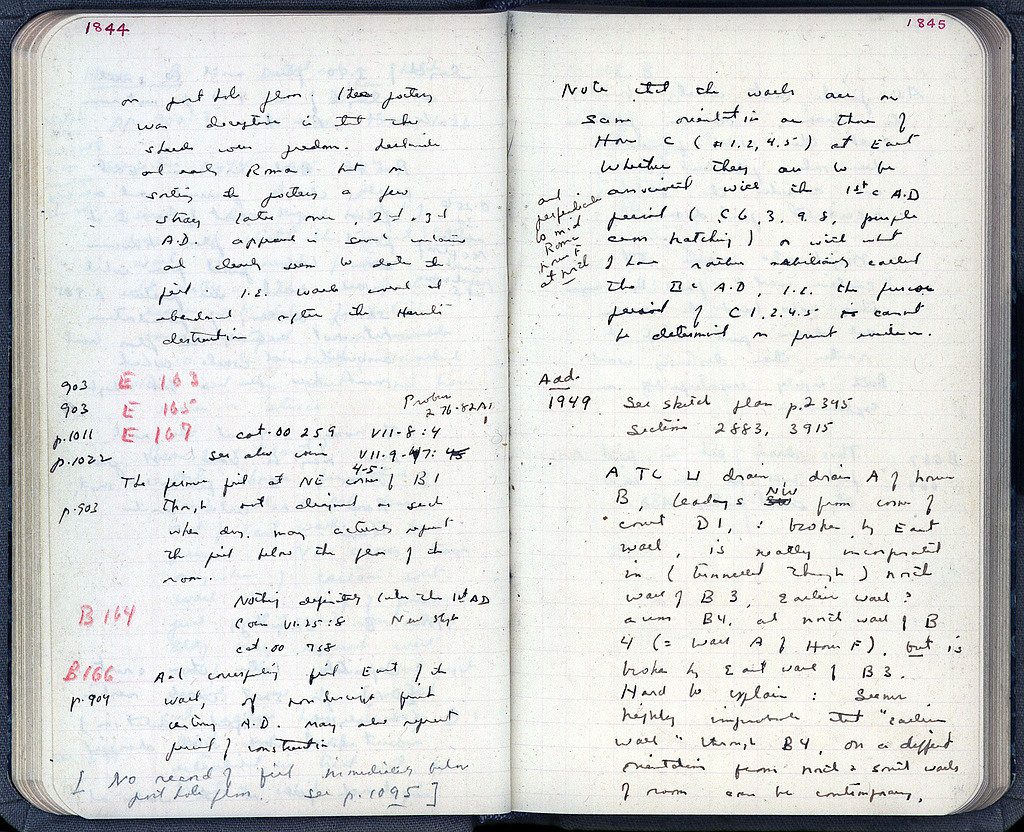 1844
on post hole floor. The pottery
was deceptive in that the
sherds were predom. Hellenistic
and early Roman but on
sorting the pottery a few
stray later ones, 2nd, 3rd
A.D. appeared in several containers
and clearly seem to date the
i.e. walls
abandoned after the Heruli
destruction
903 E 163
903 E 165
Probes
276-82 AD
p.1011 E 167 cat. 00 259 VII-8:4
p.1022 see also coin VII-9-47:
4-5
The fill at NE corner of B 1
p.903 though not as such
when dug, may actually repres.
the fill below the floor of the
room.
B 164 Nothing definitely later than 1st AD
Coin VI-25:8 New Style
cat. 00 758
B 166 And corresponding fill East of the
p.904 wall, of nondescript first
century A.D. may also represent
period of construction
[ No record of fill immediately below
post hole floor. See p. 1095 ]
1845
Note that the walls are on
same orientation as those of
House C (#1.2,4.5) at East
Whether they are to be
associated with the 1st c A.D
and
perpendicular
to mid
Roman
House F
at north
period ( C 6, 3, 9, 8, purple
cross hatching) or with what
I have rather arbitrarily called
the II c A.D, i.e. the
period of C 1.2.4.5 cannot
be determined on present evidence.
Add.
1949 See sketch plan p. 2345
Sections 2883, 3915
A TC U drain, drain A of house
B, leading NW from corner of
court D 1, : broken by East
wall, is neatly incorporated
in (tunnelled through) north
wall of B 3, Earlier wall?
across B4, at north wall of B
4 (= wall A of House F), but is
broken by East wall of B3.
Hard to explain: Seems
highly improbable that "earlier
wall" through B4, on a different
orientation from north & south walls
of room can be contemporary.